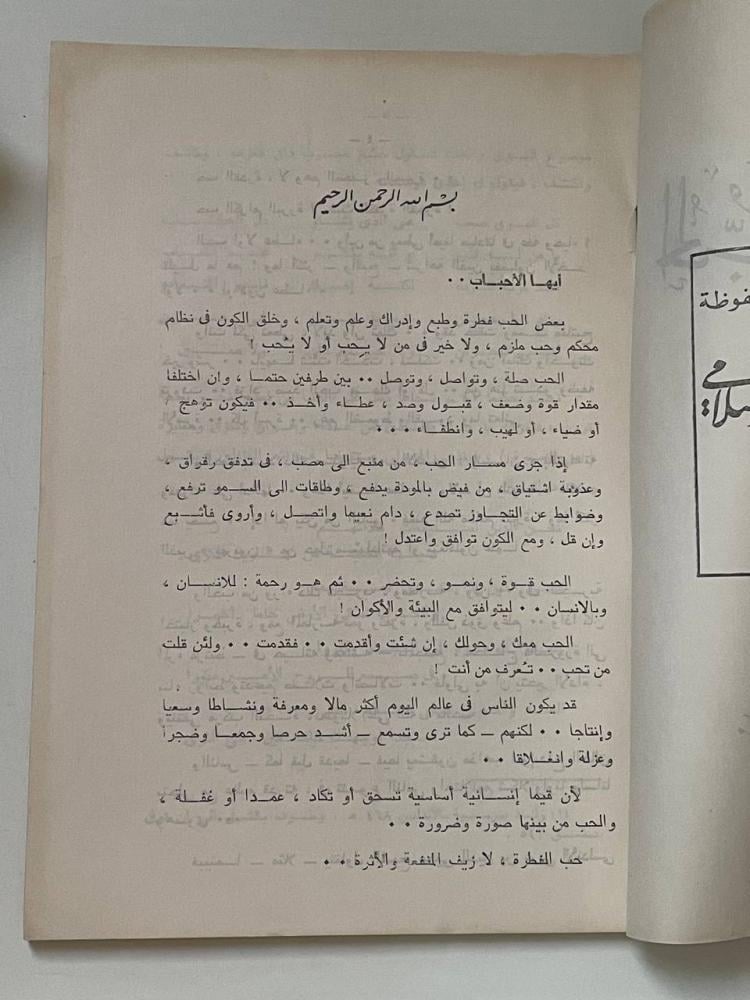 بسم الله الرحمن الرحيم
أيهـا الأحبـاب ٠٠
بعض الحب فطرة وطبع وإدراك وعلم وتعلم ، وخلق الكون فى نظام
محكم وحب ملزم ، ولا خير فى من لا يحِب أو لا يُحب !
الحب صلة ، وتواصل ، وتوصل ٠٠ بين طرفين حتمـا ، وان اختلفا
مقدار قوة وضعف ، قبـول وصد ، عطـاء وأخـذ ٠٠ فيكون توهج
أو ضياء ، أو لهيب ، وانطفـاء ٠٠٠
إذا جرى مسـار الحب ، من منبع الى مصب ، فى تدفق رقراق ،
وعذوبة اشتياق ، من فيض بالمودة يدفع ، وطاقات الى السـمو ترفع ،
وضوابط عن التجـاوز تصدع ، دام نعيما واتصـل ، وأروى فأشـبع
وإن قل ، ومع الكون توافق واعتدل !
الحب قـوة ، ونمـو ، وتحضر ٠٠ ثم هـو رحمة : للانسـان ،
وبالانسان ٠٠ ليتوافق مع البيئة والأكوان !
الحب معك ، وحولك ، إن شئت وأقدمت ٠٠ فقدمت ٠٠ ولئن قلت
من تحب ٠٠ تُعرف من أنت !
قد يكون الناس في عالم اليوم أكثر مالا ومعرفة ونشـاطا وسعيا
وإنتاجا ٠٠ لكنهم ــ كما ترى وتسمع ــ أشـد حرصا وجمعـا وضجرا
وعزلة وانغـلاقا ٠٠
لأن قيما إنسـانية أساسية تسحق أو تكاد ، عمـدا أو غفـلة ،
والحب من بينها صورة وضرورة ٠٠
حب الفطرة ، لا زيف المنفعة والأثرة ٠٠